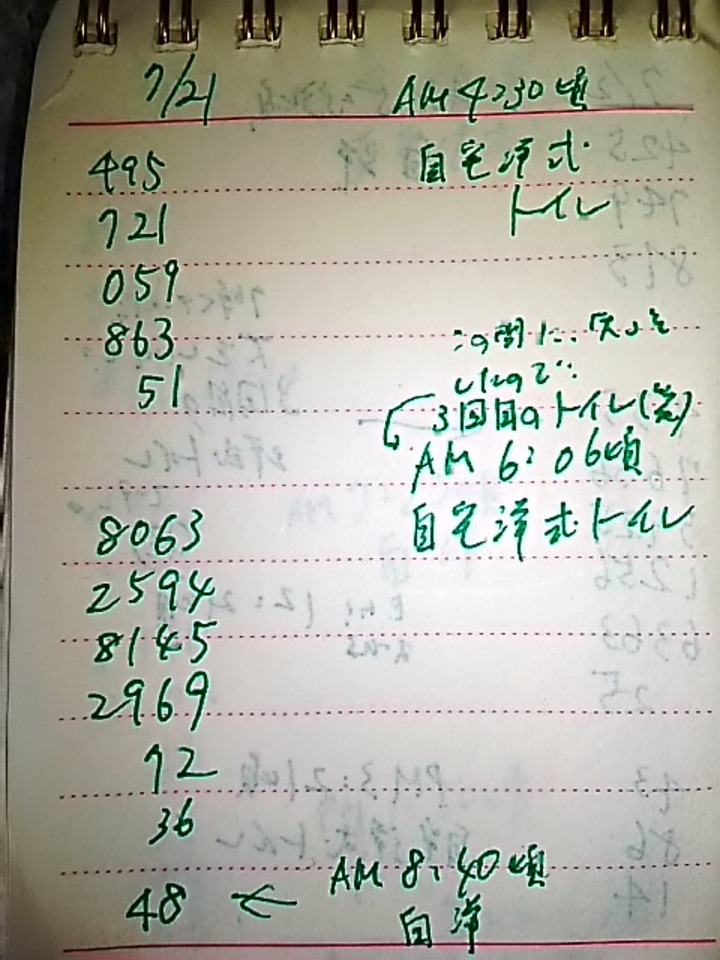 7/21 AM 4:30頃
495 自宅洋式
721 トイレ
059
863 この間に、失火を
51 したので
3回目のトイレ(笑)
AM 6:06頃
8063 自宅洋式トイレ
2594
8145
2969
72
36
48 ← AM 8:40頃
自洋